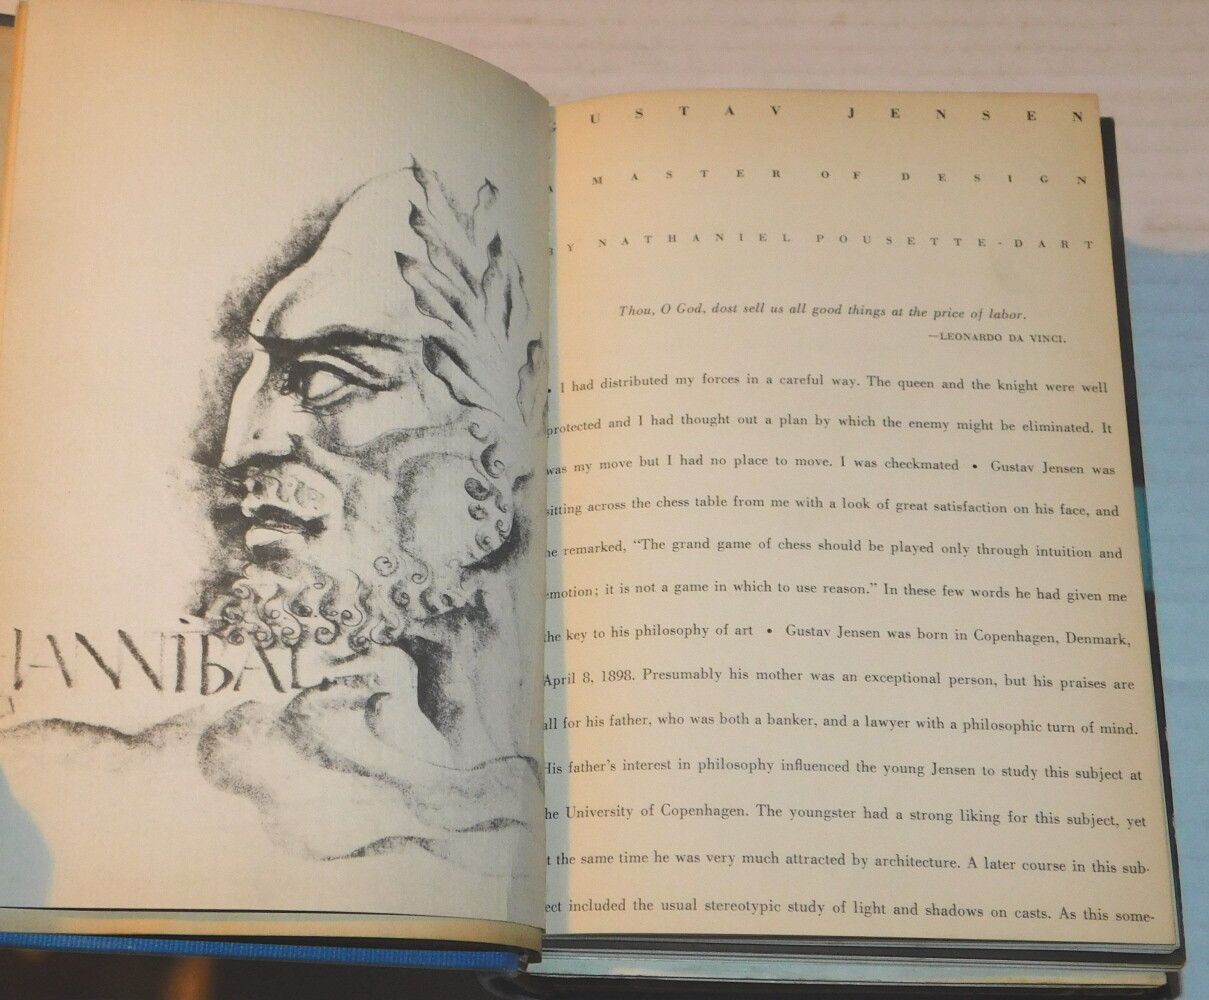 HANNIBAL
GUSTAV JENSEN
A MASTER OF DESIGN
BY NATHANIEL POUSETTE-DART
Thou, O God, dost sell us all good things at the price of labor.
—LEONARDO DA VINCI.
• I had distributed my forces in a careful way. The queen and the knight were well
protected and I had thought out a plan by which the enemy might be eliminated. It
was my move but I had no place to move. I was checkmated • Gustav Jensen was
sitting across the chess table from me with a look of great satisfaction on his face, and
he remarked, “The grand game of chess should be played only through intuition and
emotion; it is not a game in which to use reason.” In these few words he had given me
the key to his philosophy of art • Gustav Jensen was born in Copenhagen, Denmark,
April 8, 1898. Presumably his mother was an exceptional person, but his praises are
all for his father, who was both a banker, and a lawyer with a philosophic turn of mind.
His father’s interest in philosophy influenced the young Jensen to study this subject at
the University of Copenhagen. The youngster had a strong liking for this subject, yet
at the same time he was very much attracted by architecture. A later course in this sub-
ject included the usual stereotypic study of light and shadows on casts. As this some-